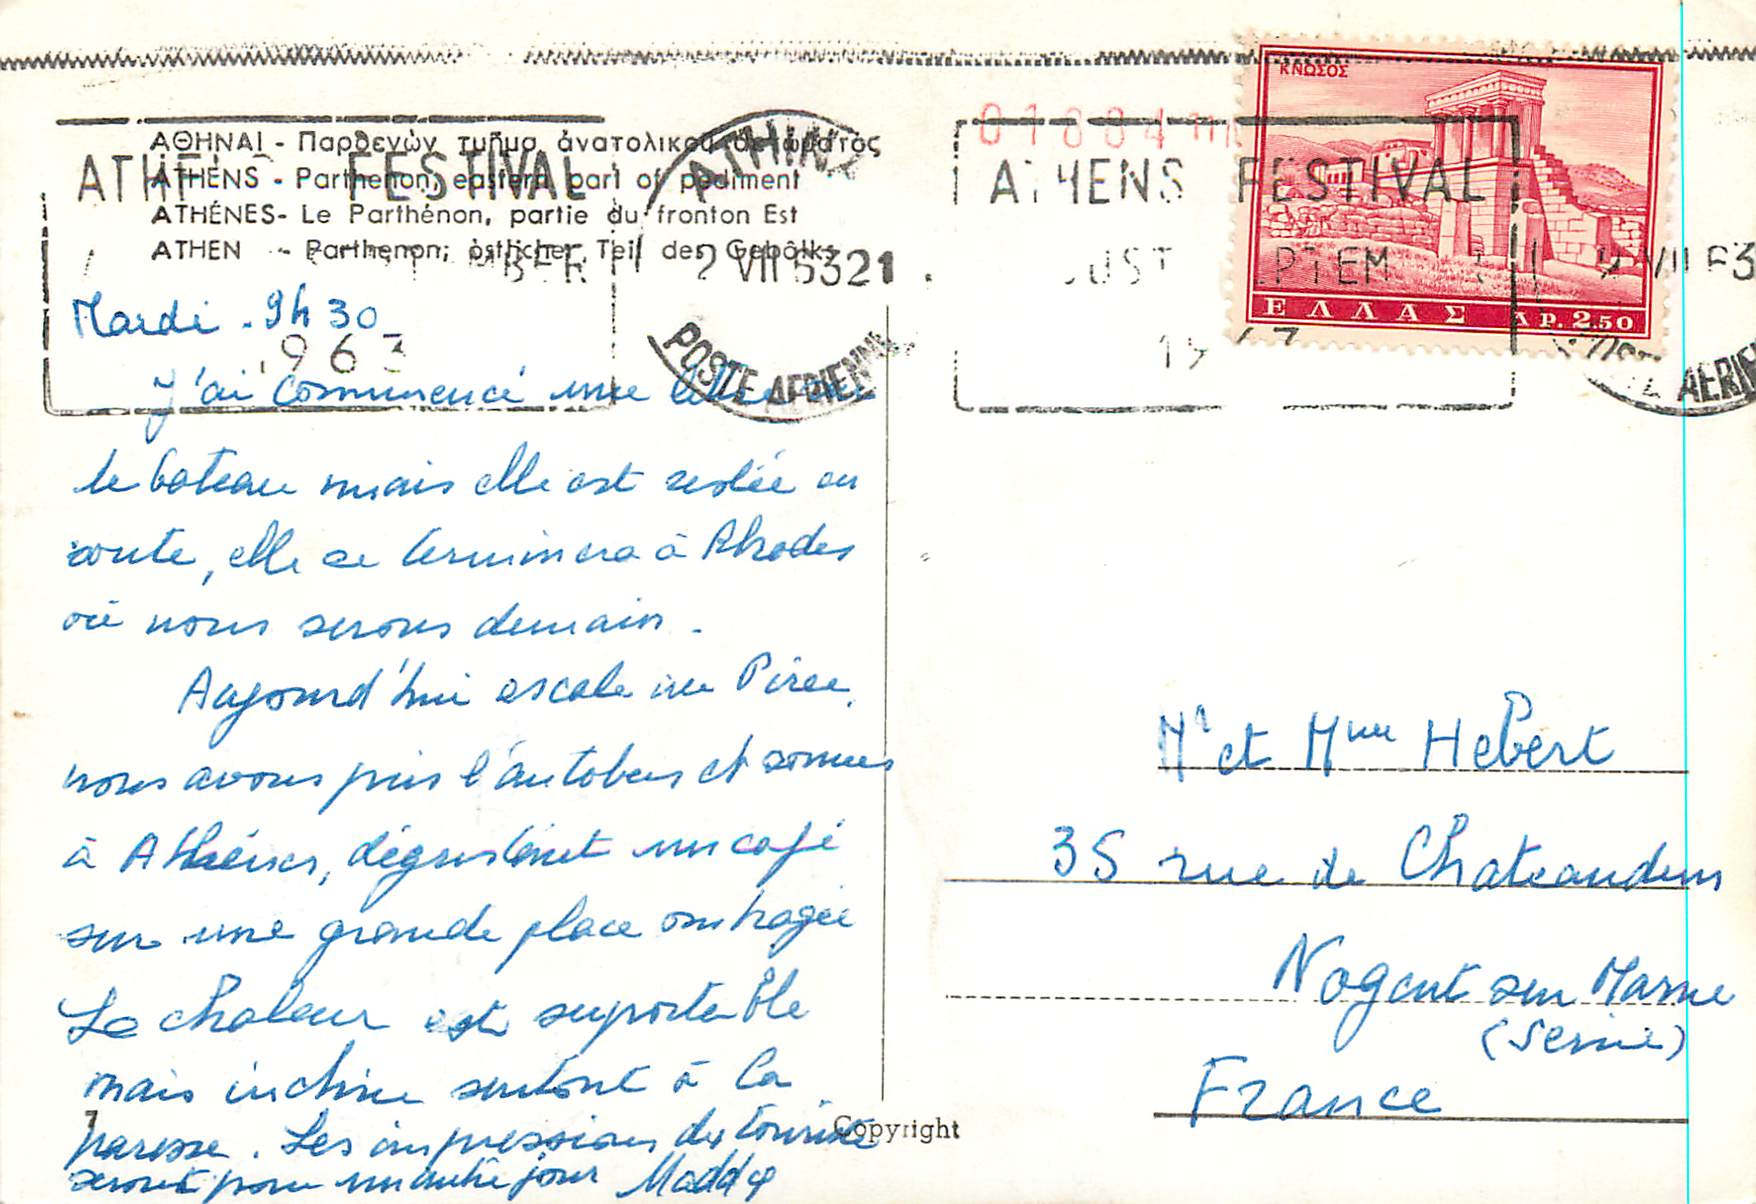 ΑΘΗΝΑΙ - Παρθενών τμῆμα ἀνατολικοῦ ἀετώματος
ATHENS - Parthenon, eastern part of pediment
ATHÉNES- Le Parthénon, partie du fronton Est
ATHEN - Parthenon; östlicher Teil des Gebôlks
FESTIVAL
1963
ATHINAI
2 VII 63 21
POSTE AERIENNE
01884
ATHENS FESTIVAL
VII 63
AERIEN
ΚΝΩΣΟΣ
ΕΛΛΑΣ ΔΡ. 2.50
Mardi - 9h 30
J'ai commencé une lettre sur
le bateau mais elle est restée en
route, elle se terminera à Rhodes
où nous serons demain.
Aujourd'hui escale au Pirée,
nous avons pris l'autobus et sommes
à Athènes, dégustant un café
sur une grande place ombragée
La chaleur est suportable
mais incline surtout à la
paresse. Les impressions du touriste
seront pour un autre jour Maddy
7
Copyright
Mr et Mme Hebert
35 rue de Chateaudun
Nogent sur Marne
(Seine)
France